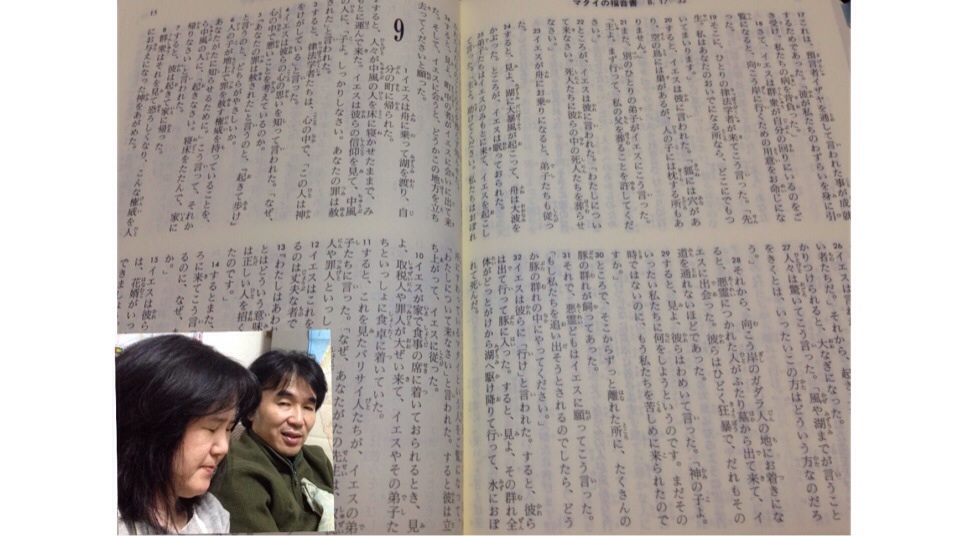 マタイの福音書
17 これは、預言者イザヤを通して言われた事が成就
するためであった。「彼が私たちのわずらいを身に引
き受け、私たちの病を背負った。」
18 さて、イエスは群衆が自分の回りにいるのをご
覧になると、向こう岸に行くための用意をお命じにな
った。
19 そこに、ひとりの律法学者が来てこう言った。「先
生。私はあなたのおいでになる所なら、どこにでもつ
いてまいります。」
20 すると、イエスは彼に言われた。「狐には穴があ
り、空の鳥には巣があるが、人の子には枕する所もあ
りません。」
21 また、別のひとりの弟子がイエスにこう言った。
「主よ。まず行って、私の父を葬ることを許してくだ
さい。」
22 ところが、イエスは彼に言われた。「わたしについ
て来なさい。死人たちに彼らの中の死人たちを葬らせ
なさい。」
23 イエスが舟にお乗りになると、弟子たちも従っ
た。
24 すると、見よ、湖に大暴風が起こって、舟は大波を
かぶった。ところが、イエスは眠っておられた。
25 弟子たちはイエスのみもとに来て、イエスを起こし
28 それから、向こう岸のガダラ人の地にお着きにな
ると、悪霊につかれた人がふたり墓から出て来て、イ
エスに出会った。彼らはひどく狂暴で、だれもその
道を通れないほどであった。
29 すると、見よ、彼らはわめいて言った。「神の子よ。
いったい私たちに何をしようというのです。まだその
時ではないのに、もう私たちを苦しめに来られたので
すか。」
30 ところで、そこからずっと離れた所に、たくさんの
豚の群れが飼ってあった。
31 それで、悪霊どもはイエスに願ってこう言った。
「もし私たちを追い出そうとされるのでしたら、どう
か豚の群れの中にやってください。」
32 イエスは彼らに「行け」と言われた。すると、彼ら
は出て行って豚に入った。すると、見よ、その群れ全
体がどっとがけから湖へ駆け降りて行って、水におぼ
れて死んだ。
15
た。そして、イエスに会うと、どうかこの地方を立ち
去ってくださいと願った。
9
1 イエスは舟に乗って湖を渡り、自
分の町に帰られた。
2 すると、人々が中風の人を床に寝かせたままで、み
もとに運んで来た。イエスは彼らの信仰を見て、中風
の人に、「子よ。しっかりしなさい。あなたの罪は赦
された」と言われた。
3 すると、律法学者たちは、心の中で、「この人は神
をけがしている」と言った。
4 イエスは彼らの心の思いを知って言われた。「なぜ、
心の中で悪いことを考えているのか。
5 『あなたの罪は赦された』と言うのと、『起きて歩け』
と言うのと、どちらがやさしいか。
6 人の子が地上で罪を赦す権威を持っていることを、
あなたがたに知らせるために。」こう言って、それか
ら中風の人に、「起きなさい。寝床をたたんで、家に
帰りなさい」と言われた。
7 すると、彼は起きて家に帰った。
8 群衆はそれを見て恐ろしくなり、こんな権威を人
にお与えになった神をあがめた。
「わたしについて来なさい」と言われた。すると彼は立
ち上がって、イエスに従った。
10 イエスが家で食事の席に着いておられるとき、見
よ、取税人や罪人が大ぜい来て、イエスやその弟子た
ちといっしょに食卓に着いていた。
11 すると、これを見たパリサイ人たちが、イエスの弟
子たちに言った。「なぜ、あなたがたの先生は、
人や罪人といっし
12 イエスはこれを
るのは丈夫な者で
13 『わたしはあわ
とはどういう意味
は正しい人を招く
たのです。」
14 するとまた、
ろに来てこう言
るのに、なぜ、
15 イエスは彼ら
は、花婿がいっ
できまし